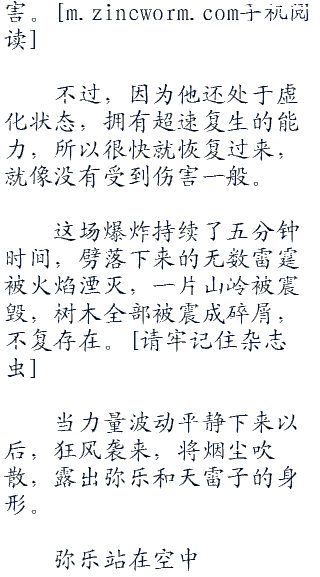 害。[m.zincworm.com手机阅
读]
不过，因为他还处于虚
化状态，拥有超速复生的能
力，所以很快就恢复过来，
就像没有受到伤害一般。
这场爆炸持续了五分钟
时间，劈落下来的无数雷霆
被火焰湮灭，一片山岭被震
毁，树木全部被震成碎屑，
不复存在。[请牢记住杂志
虫]
当力量波动平静下来以
后，狂风袭来，将烟尘吹
散，露出弥乐和天雷子的身
形。
弥乐站在空中